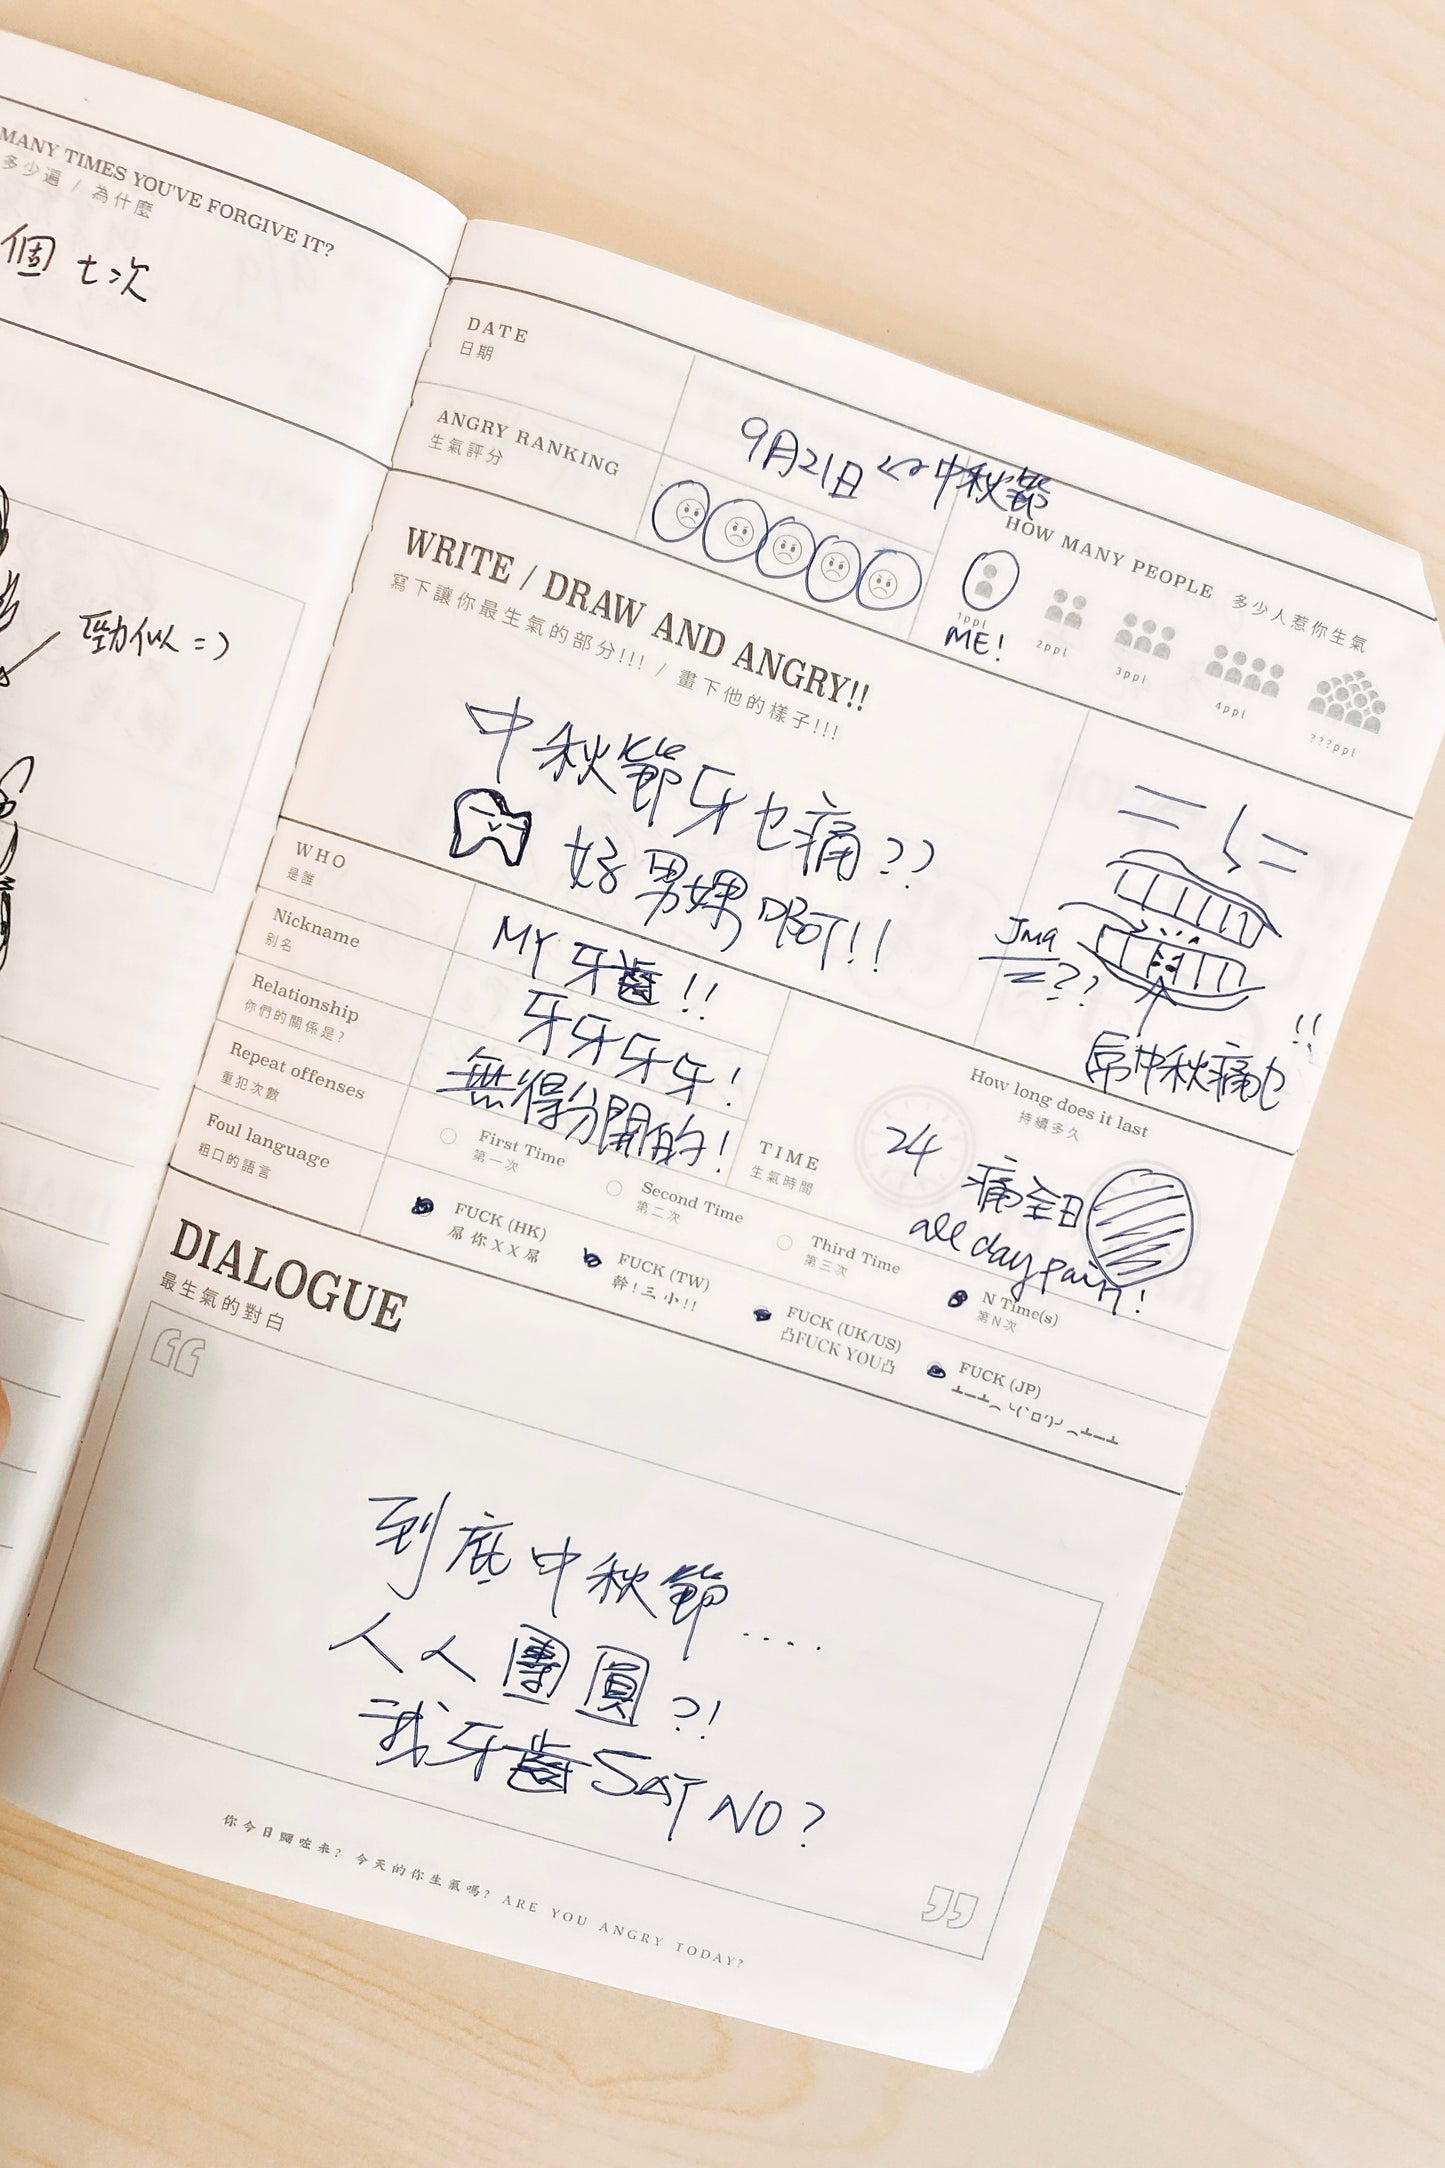 MANY TIMES YOU'VE FORGIVE IT?
多少遍 / 為什麼
個 七次
勁似 =)
DATE
日期
9月21日 ↔ 中秋節
ANGRY RANKING
生氣評分
HOW MANY PEOPLE 多少人惹你生氣
1ppl
ME!
2ppl
3ppl
4ppl
???ppl
WRITE / DRAW AND ANGRY!!
寫下讓你最生氣的部分!!! / 畫下他的樣子!!!
中秋節牙也痛??
好男嬶
中秋痛
WHO
是誰
MY 牙齒!!
Nickname
別名
牙牙牙牙!
Relationship
你們的關係是?
無得分開的!
Repeat offenses
重犯次數
First Time
第一次
Second Time
第二次
Third Time
第三次
N Time(s)
第N次
TIME
生氣時間
How long does it last
持續多久
24
痛全日
all day pain!
Foul language
粗口的語言
FUCK (HK)
屌你XX屌
FUCK (TW)
幹!三小!!
FUCK (UK/US)
凸FUCK YOU凸
FUCK (JP)
DIALOGUE
最生氣的對白
到底中秋節....
人人團圓?!
我牙齒SAY NO?
你今日𨳊咗未? 今天的你生氣嗎? ARE YOU ANGRY TODAY?